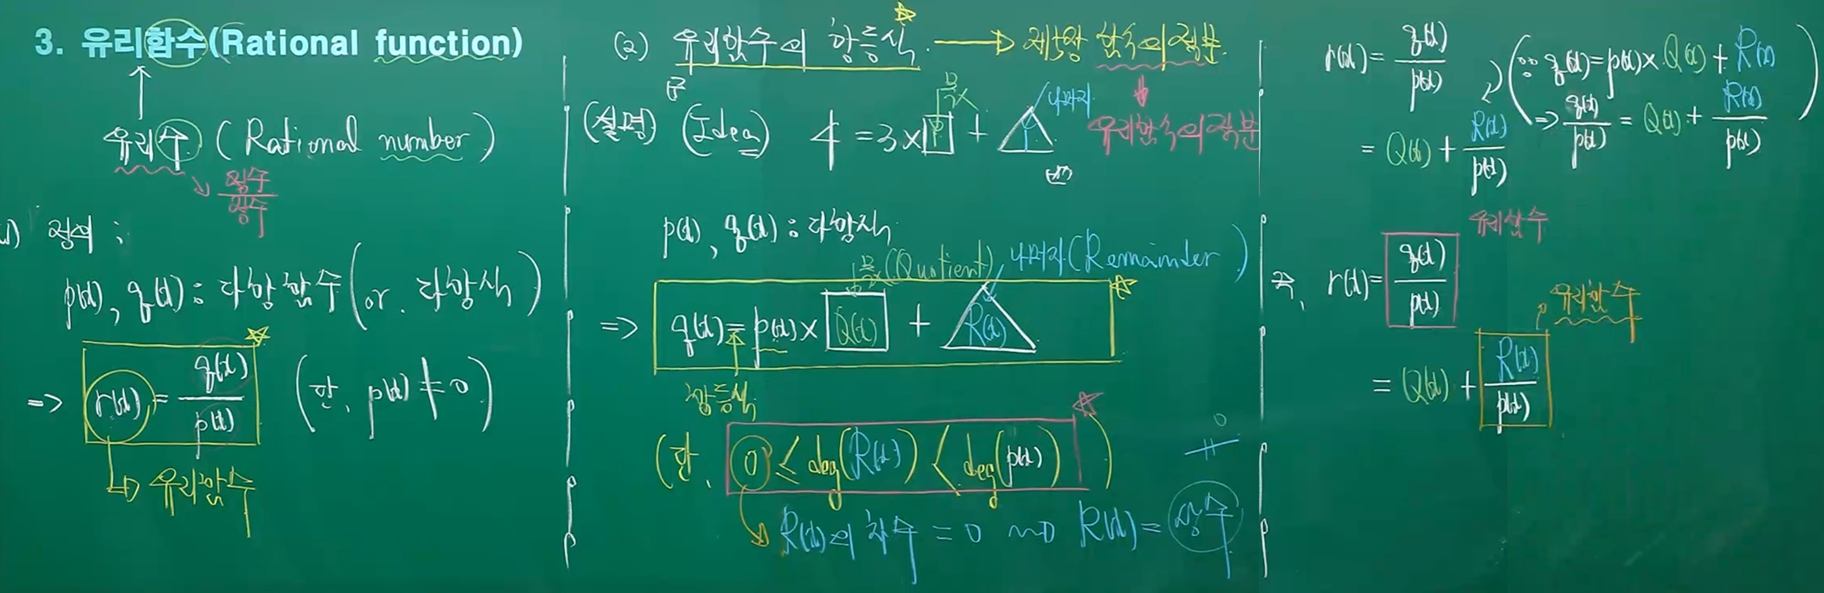 3. 유리함수(Rational function)
유리수 (Rational number)
정수
정수
정의 :
p(x), q(x) : 다항함수 (or. 다항식)
=> r(x) = q(x)/p(x) (단, p(x) ≠ 0)
유리함수
(2) 유리함수의 항등식 → 함수의 적분
유리함수의 적분
(설명) (Idea) 4 = 3 × 1 + 1
몫
나머지
p(x), q(x) : 다항식
몫(Quotient) 나머지(Remainder)
=> q(x) = p(x) × Q(x) + R(x)
항등식
(단, 0 ≤ deg(R(x)) < deg(p(x)))
R(x)의 차수 = 0 ⇝ R(x) = 상수
0
r(x) = q(x)/p(x) (∵ q(x) = p(x) × Q(x) + R(x)
=> q(x)/p(x) = Q(x) + R(x)/p(x))
= Q(x) + R(x)/p(x)
유리함수
즉, r(x) = q(x)/p(x)
유리함수
= Q(x) + R(x)/p(x)